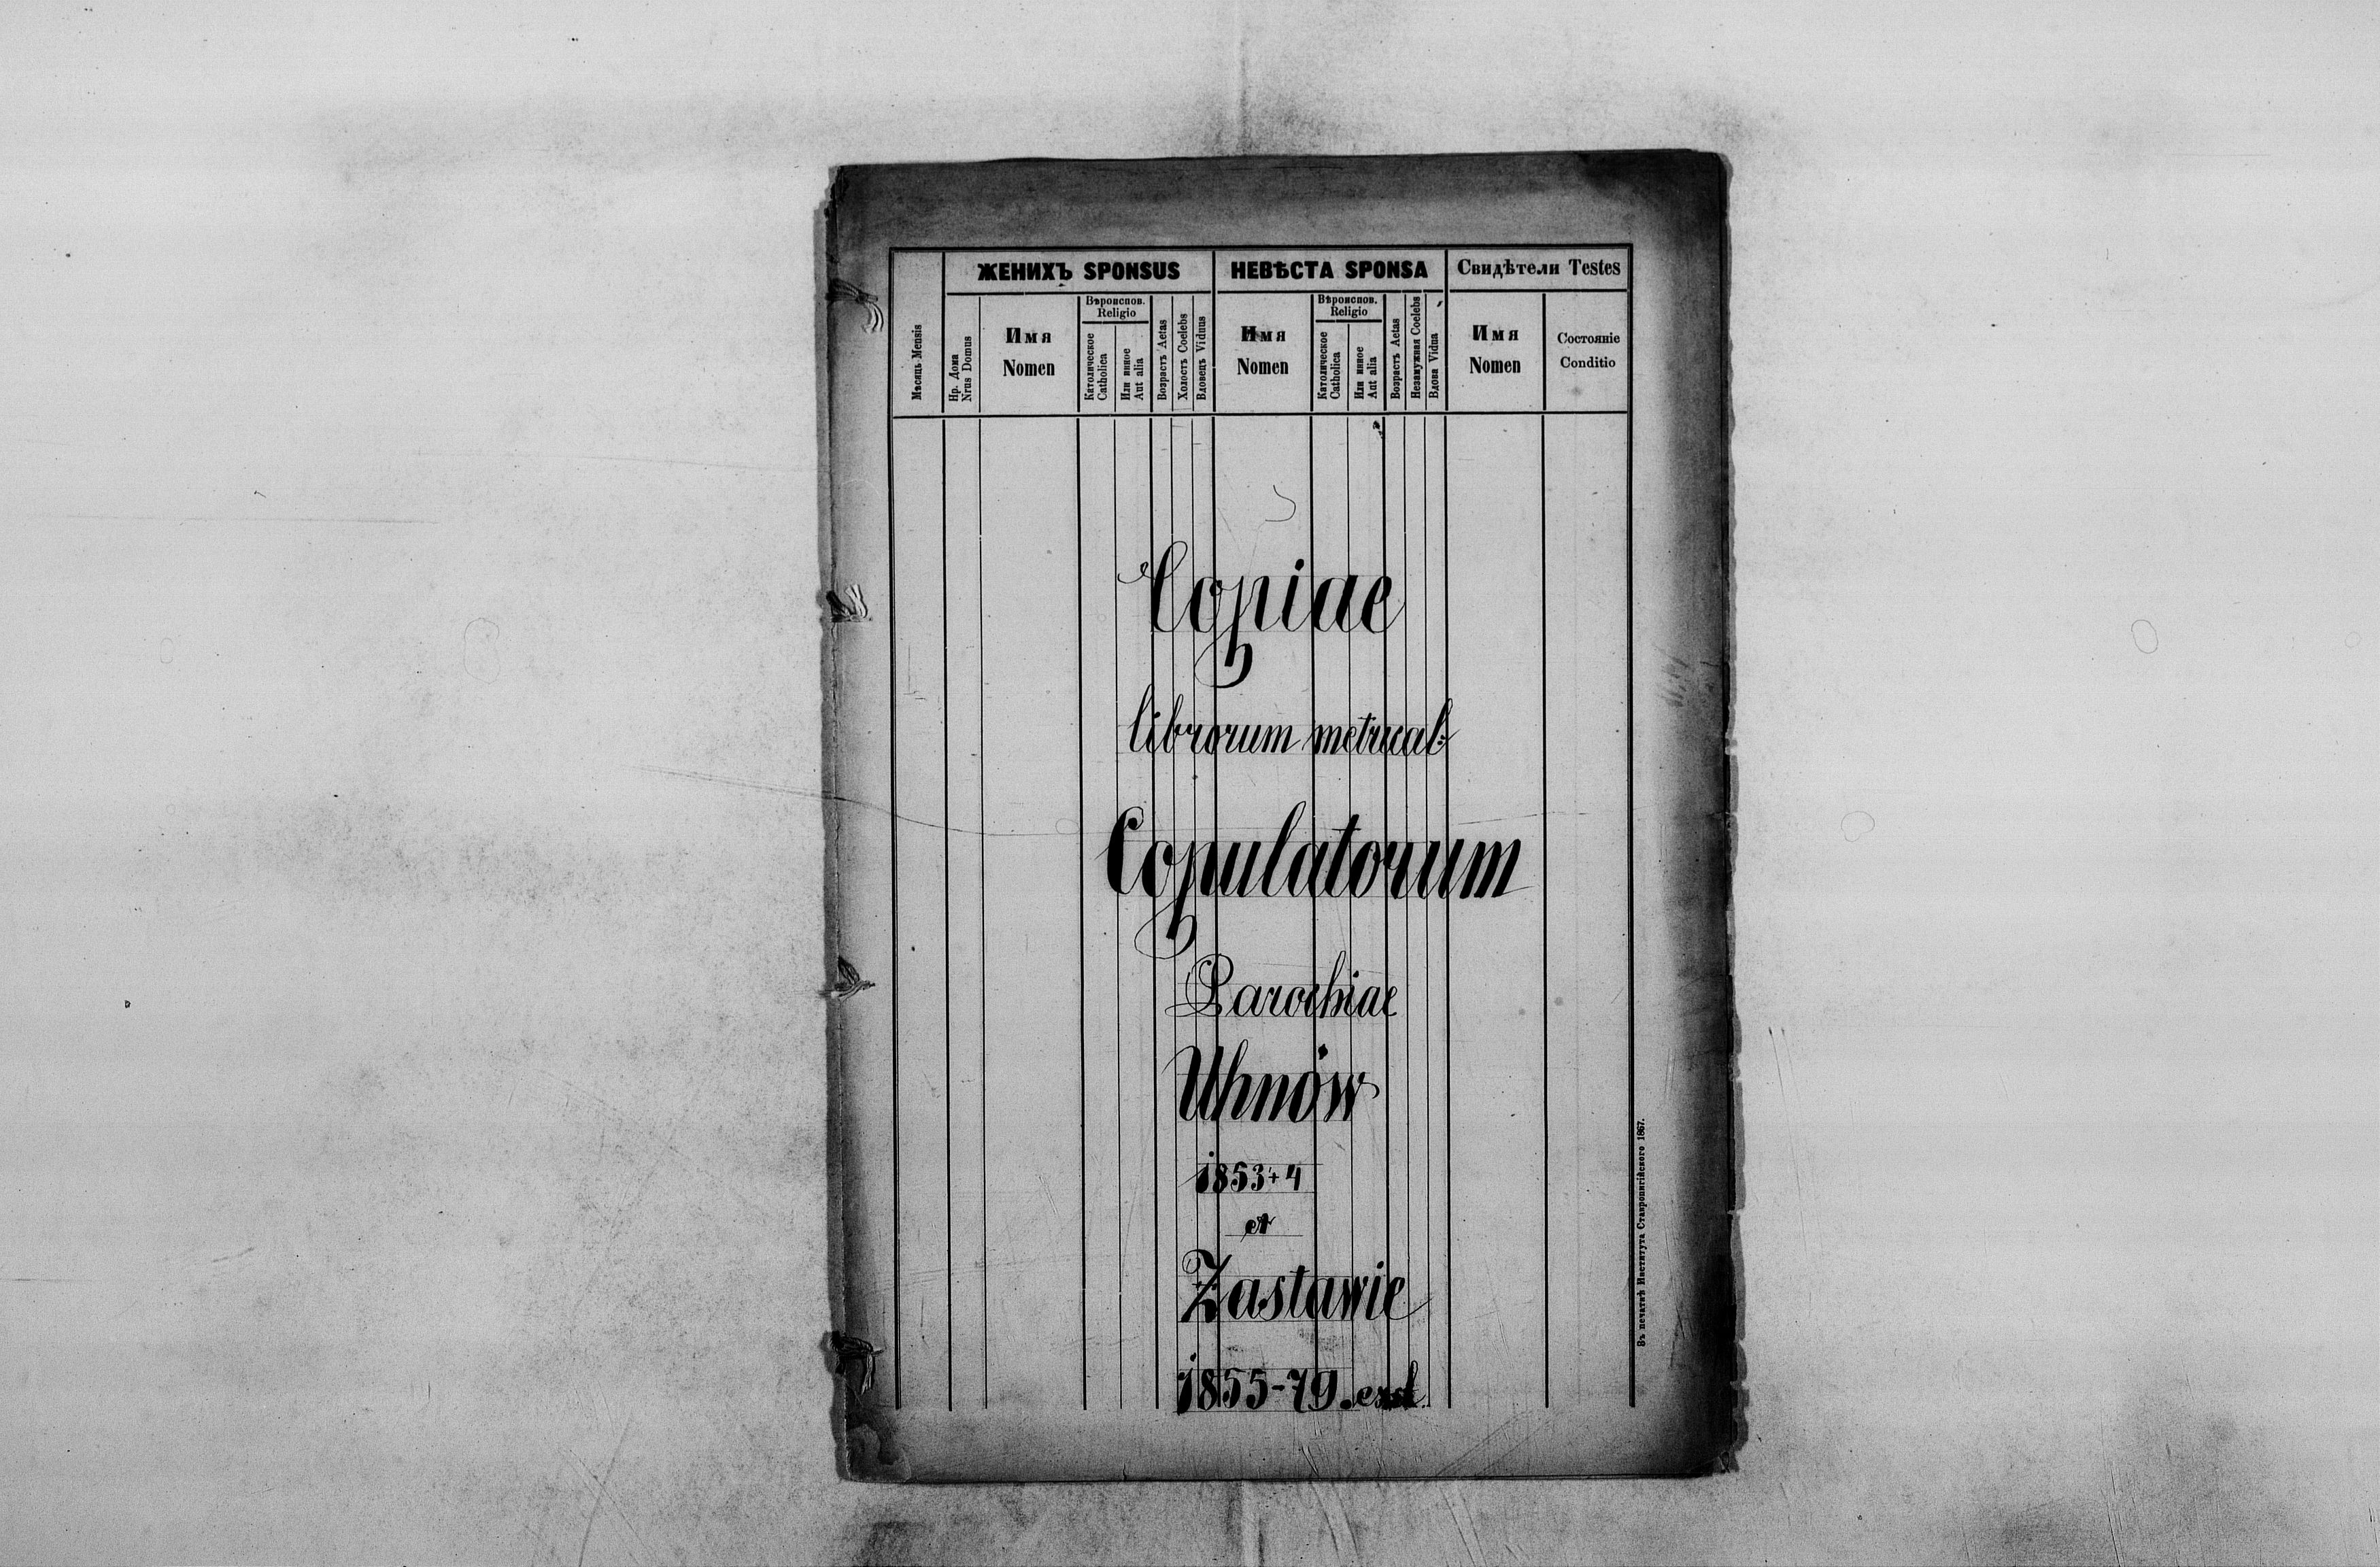 ЖЕНИХЪ SPONSUS
НЕВѢСТА SPONSA
Свидѣтели Testes
Мѣсяць Mensis
Нр. Дома
Nrus Domus
Имя
Nomen
Вѣроиспов.
Religio
Католическое
Catholica
Или инное
Aut alia
Возрастъ Aetas
Холостъ Coelebs
Вдовецъ Viduus
Имя
Nomen
Вѣроиспов.
Religio
Католическое
Catholica
Или инное
Aut alia
Возрастъ Aetas
Незамужная Coelebs
Вдова Vidua
Имя
Nomen
Состояніе
Conditio
Copiae
librorum metrical:
Copulatorum
Parochiae
Uhnów
1853+4
et
Zastawie
1855-79.
Въ печатнѣ Института Ставропигійского 1867.